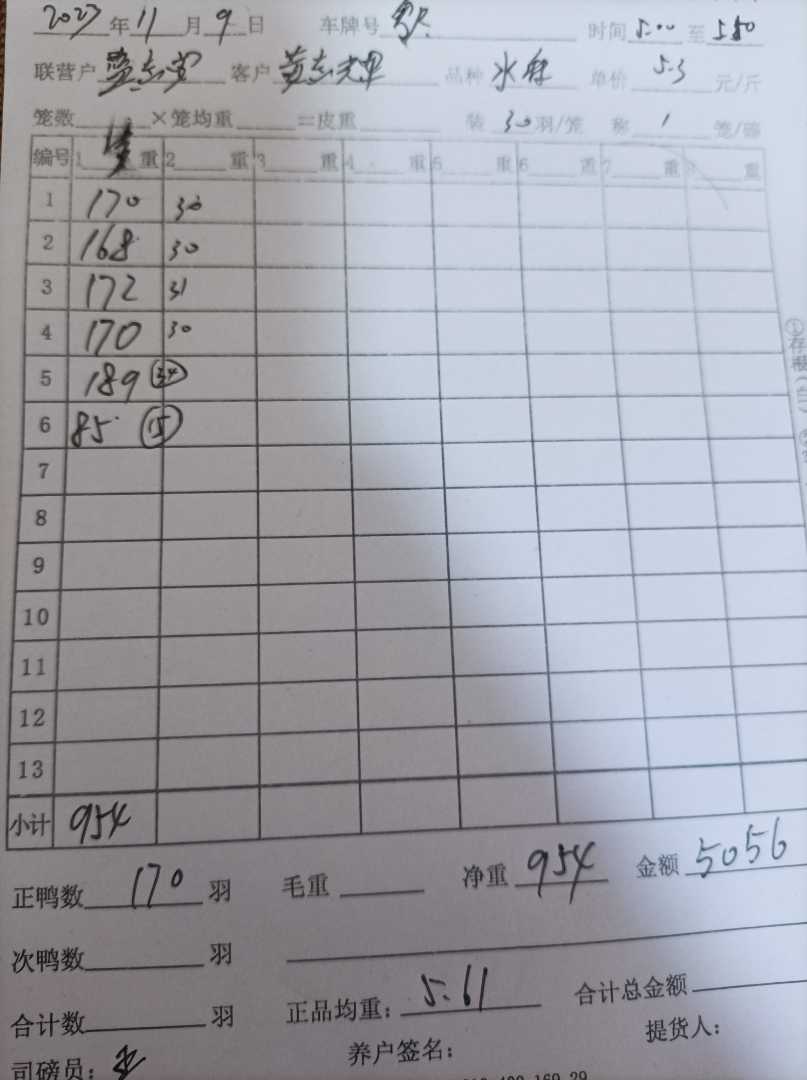 2023年11月9日 车牌号 时间5:00至5:50
联营户 客户 黄志光 品种 水麻 单价5.3元/斤
笼数 ×笼均重 =皮重 装30羽/笼 称1笼/磅
编号 1 重 2 重 3 重 4 重 5 重 6 重 7 重 8 重
1 170 30
2 168 30
3 172 31
4 170 30
5 189 34
6 85 15
7
8
9
10
11
12
13
小计 954
正鸭数170羽 毛重 净重954 金额5056
次鸭数 羽
合计数 羽 正品均重：5.61 合计总金额
司磅员： 养户签名： 提货人：
①存根（白）